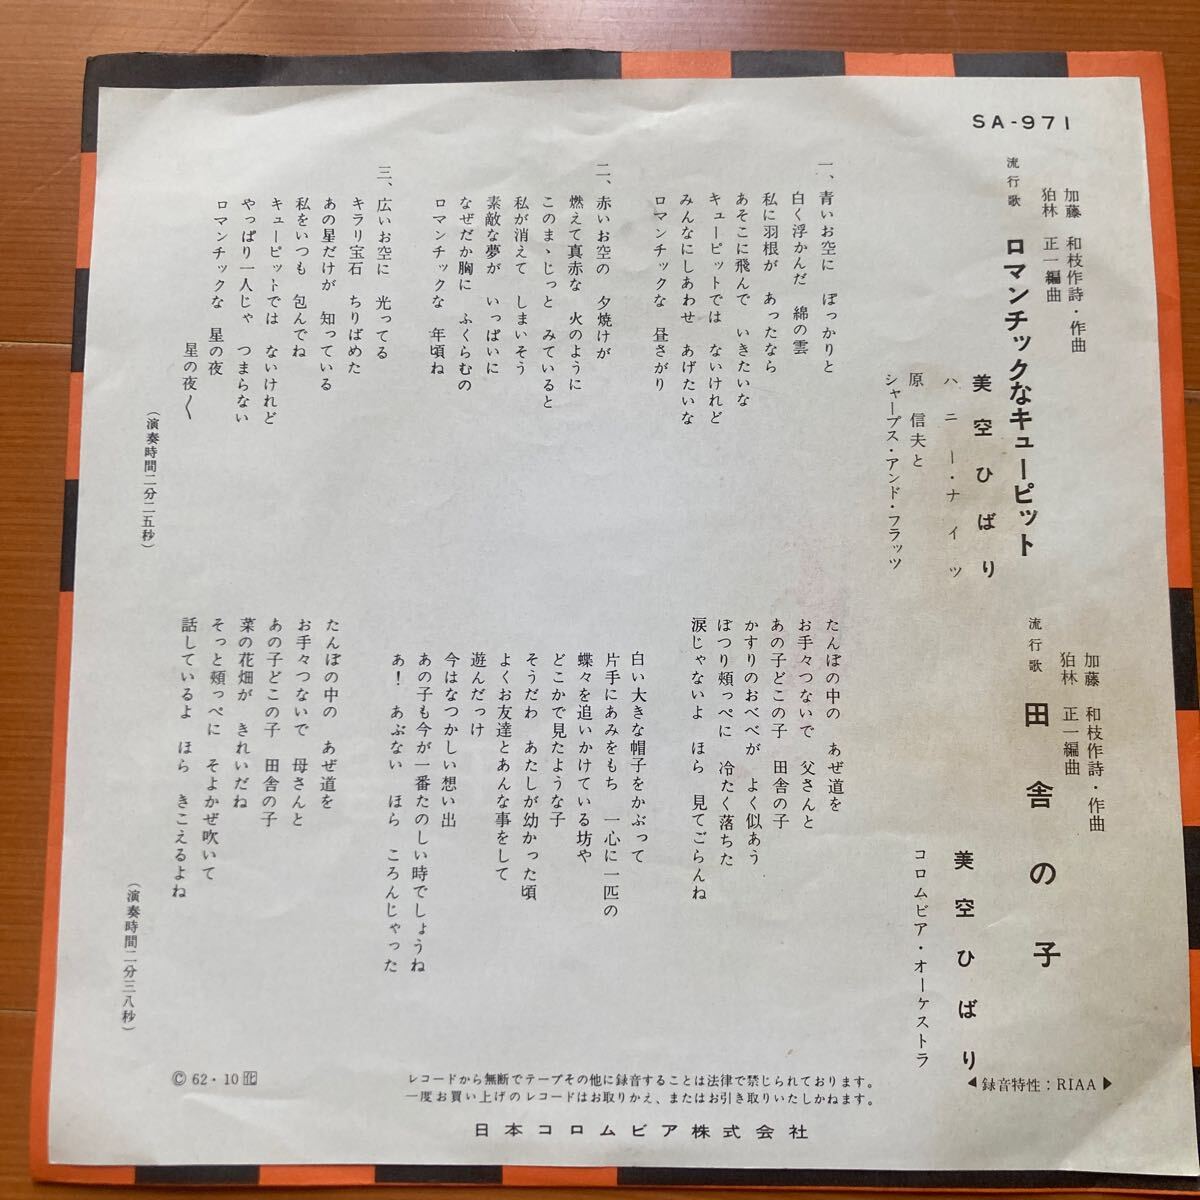 SA-971
流行歌 ロマンチックなキューピット
加藤 和枝作詩・作曲
狛林 正一編曲
美空ひばり
ハニー・ナイツ
原 信夫と
シャープス・アンド・フラッツ
一、青いお空に ぽっかりと
白く浮かんだ 綿の雲
私に羽根が あったなら
あそこに飛んで いきたいな
キューピットでは ないけれど
みんなにしあわせ あげたいな
ロマンチックな 昼さがり
二、赤いお空の 夕焼けが
燃えて真赤な 火のように
このまゝじっと みていると
私が消えて しまいそう
素敵な夢が いっぱいに
なぜだか胸に ふくらむの
ロマンチックな 年頃ね
三、広いお空に 光ってる
キラリ宝石 ちりばめた
あの星だけが 知っている
私をいつも 包んでね
キューピットでは ないけれど
やっぱり一人じゃ つまらない
ロマンチックな 星の夜
星の夜〱
(演奏時間二分二五秒)
流行歌 田舎の子
加藤 和枝作詩・作曲
狛林 正一編曲
美空ひばり
コロムビア・オーケストラ
たんぼの中の あぜ道を
お手々つないで 父さんと
あの子どこの子 田舎の子
かすりのおべべが よく似あう
ぽつり頬っぺに 冷たく落ちた
涙じゃないよ ほら 見てごらんね
白い大きな帽子をかぶって
片手にあみをもち 一心に一匹の
蝶々を追いかけている坊や
どこかで見たような子
そうだわ あたしが幼かった頃
よくお友達とあんな事をして
遊んだっけ
今はなつかしい想い出
あの子も今が一番たのしい時でしょうね
あ! あぶない ほら ころんじゃった
たんぼの中の あぜ道を
お手々つないで 母さんと
あの子どこの子 田舎の子
菜の花畑が きれいだね
そっと頬っぺに そよかぜ吹いて
話しているよ ほら きこえるよね
(演奏時間二分三八秒)
◀録音特性：RIAA▶
レコードから無断でテープその他に録音することは法律で禁じられております。
一度お買い上げのレコードはお取りかえ、またはお引き取りいたしかねます。
Ⓒ 62・10
日本コロムビア株式会社